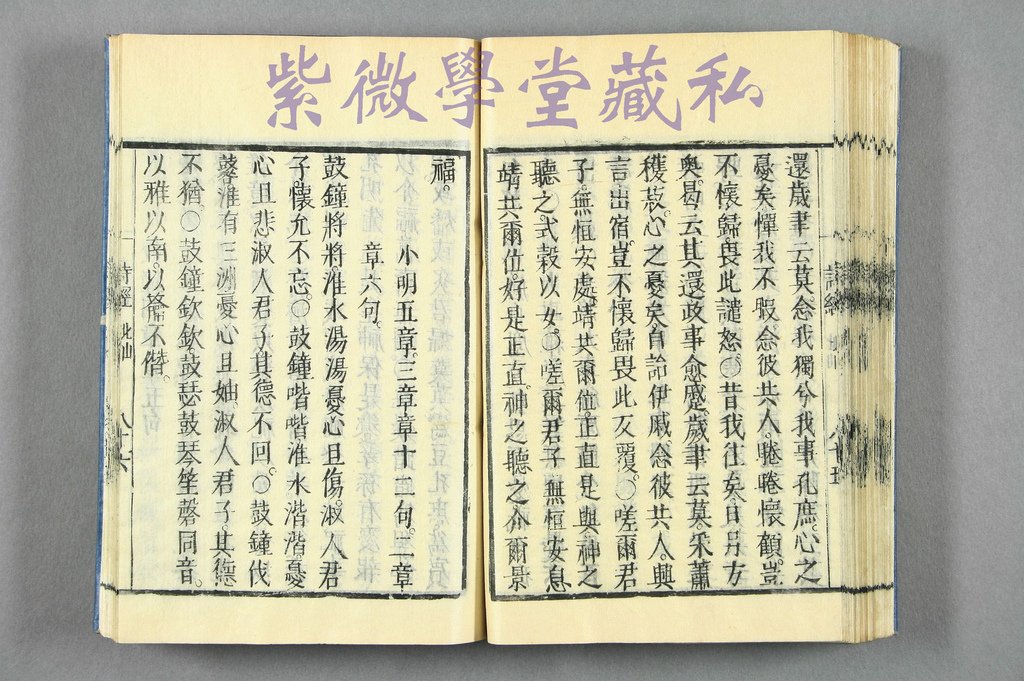 紫微學堂藏私
詩經
八十五
還歲聿云莫念我獨兮我事孔庶。心之
憂矣憚我不暇。念彼共人。睠睠懷顧。豈
不懷歸。畏此譴怒。○昔我往矣日月方
奧。曷云其還政事愈蹙。歲聿云莫。采蕭
穫菽。心之憂矣自詒伊戚。念彼共人。興
言出宿。豈不懷歸畏此反覆。○嗟爾君
子。無恒安處。靖共爾位。正直是與。神之
聽之。式穀以女。○嗟爾君子無恒安息
靖共爾位。好是正直。神之聽之介爾景
福。
小明五章。三章章十二句。二章
章六句。
鼓鐘將將。淮水湯湯憂心且傷。淑人君
子。懷允不忘。○鼓鐘喈喈淮水湝湝。憂
心且悲淑人君子其德不回。○鼓鐘伐
鼛淮有三洲憂心且妯淑人君子其德
不猶。○鼓鐘欽欽。鼓瑟鼓琴笙磬同音。
以雅以南。以籥不僭。
詩經 北山 八十六